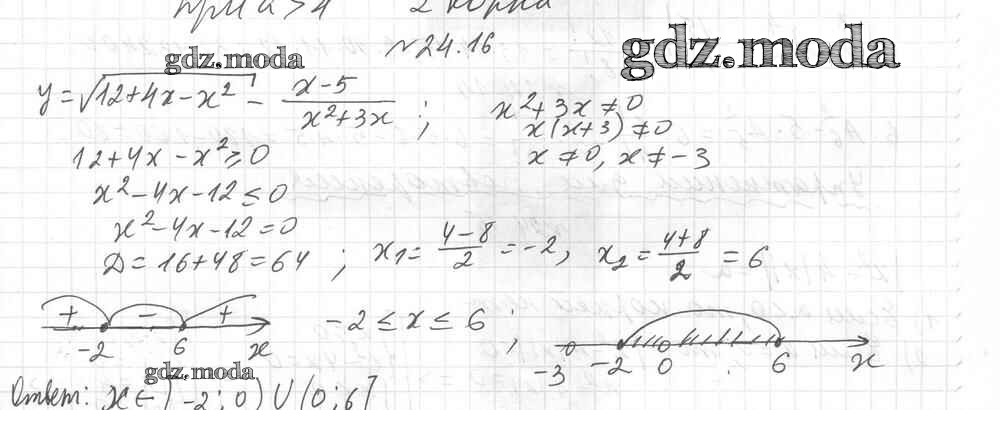 при a > 4 2 корня
№24.16
gdz.moda
gdz.moda
y = √(12+4x-x²) - (x-5)/(x²+3x) ; x²+3x ≠ 0
x(x+3) ≠ 0
12+4x-x² ≥ 0 x ≠ 0, x ≠ -3
x²-4x-12 ≤ 0
x²-4x-12 = 0
D = 16+48 = 64 ; x₁ = (4-8)/2 = -2, x₂ = (4+8)/2 = 6
+ - + -2 ≤ x ≤ 6 ;
-2 6 x -3 -2 0 6 x
gdz.moda
Ответ: x ∈ [-2; 0) U (0; 6]